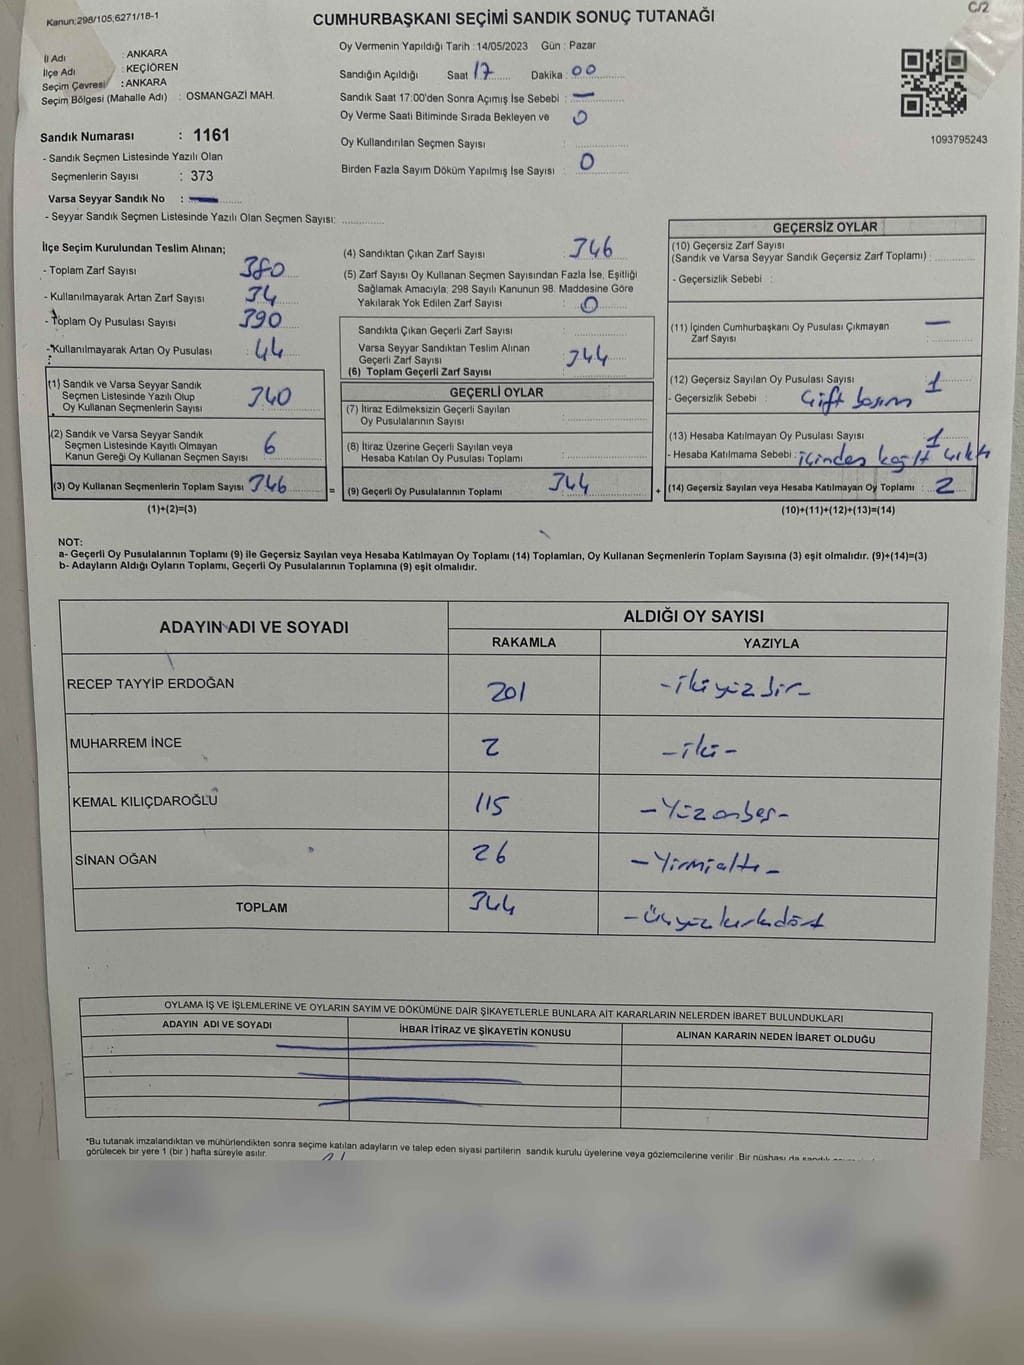 Kanun;298/105,6271/18-1
C/2
CUMHURBAŞKANI SEÇİMİ SANDIK SONUÇ TUTANAĞI
İl Adı : ANKARA
İlçe Adı : KEÇİÖREN
Seçim Çevresi : ANKARA
Seçim Bölgesi (Mahalle Adı) : OSMANGAZİ MAH.
Sandık Numarası : 1161
- Sandık Seçmen Listesinde Yazılı Olan
Seçmenlerin Sayısı : 373
Varsa Seyyar Sandık No : —
- Seyyar Sandık Seçmen Listesinde Yazılı Olan Seçmen Sayısı:
Oy Vermenin Yapıldığı Tarih : 14/05/2023 Gün : Pazar
Sandığın Açıldığı Saat 17 Dakika : 00
Sandık Saat 17:00'den Sonra Açımış İse Sebebi : —
Oy Verme Saati Bitiminde Sırada Bekleyen ve 0
Oy Kullandırılan Seçmen Sayısı :
Birden Fazla Sayım Döküm Yapılmış İse Sayısı : 0
1093795243
İlçe Seçim Kurulundan Teslim Alınan;
- Toplam Zarf Sayısı : 380
- Kullanılmayarak Artan Zarf Sayısı : 34
- Toplam Oy Pusulası Sayısı : 390
- Kullanılmayarak Artan Oy Pusulası : 44
(1) Sandık ve Varsa Seyyar Sandık
Seçmen Listesinde Yazılı Olup
Oy Kullanan Seçmenlerin Sayısı : 340
(2) Sandık ve Varsa Seyyar Sandık
Seçmen Listesinde Kayıtlı Olmayan
Kanun Gereği Oy Kullanan Seçmen Sayısı : 6
(3) Oy Kullanan Seçmenlerin Toplam Sayısı : 346
(1)+(2)=(3)
(4) Sandıktan Çıkan Zarf Sayısı : 346
(5) Zarf Sayısı Oy Kullanan Seçmen Sayısından Fazla İse, Eşitliği
Sağlamak Amacıyla; 298 Sayılı Kanunun 98. Maddesine Göre
Yakılarak Yok Edilen Zarf Sayısı : 0
Sandıkta Çıkan Geçerli Zarf Sayısı :
Varsa Seyyar Sandıktan Teslim Alınan
Geçerli Zarf Sayısı
(6) Toplam Geçerli Zarf Sayısı : 344
GEÇERLİ OYLAR
(7) İtiraz Edilmeksizin Geçerli Sayılan
Oy Pusulalarının Sayısı :
(8) İtiraz Üzerine Geçerli Sayılan veya
Hesaba Katılan Oy Pusulası Toplamı :
= (9) Geçerli Oy Pusulalarının Toplamı : 344
GEÇERSİZ OYLAR
(10) Geçersiz Zarf Sayısı
(Sandık ve Varsa Seyyar Sandık Geçersiz Zarf Toplamı) :
- Geçersizlik Sebebi :
(11) İçinden Cumhurbaşkanı Oy Pusulası Çıkmayan —
Zarf Sayısı :
(12) Geçersiz Sayılan Oy Pusulası Sayısı : 1
- Geçersizlik Sebebi : Çift basım
(13) Hesaba Katılmayan Oy Pusulası Sayısı : 1
- Hesaba Katılmama Sebebi : içinden kağıt çıktı
+ (14) Geçersiz Sayılan veya Hesaba Katılmayan Oy Toplamı : 2
(10)+(11)+(12)+(13)=(14)
NOT:
a- Geçerli Oy Pusulalarının Toplamı (9) ile Geçersiz Sayılan veya Hesaba Katılmayan Oy Toplamı (14) Toplamları, Oy Kullanan Seçmenlerin Toplam Sayısına (3) eşit olmalıdır. (9)+(14)=(3)
b- Adayların Aldığı Oyların Toplamı, Geçerli Oy Pusulalarının Toplamına (9) eşit olmalıdır.
ADAYIN ADI VE SOYADI
ALDIĞI OY SAYISI
RAKAMLA YAZIYLA
RECEP TAYYİP ERDOĞAN 201 -ikiyüzbir-
MUHARREM İNCE 2 -iki-
KEMAL KILIÇDAROĞLU 115 -Yüzonbeş-
SİNAN OĞAN 26 -Yirmialtı-
TOPLAM 344 -Üçyüzkırkdört
OYLAMA İŞ VE İŞLEMLERİNE VE OYLARIN SAYIM VE DÖKÜMÜNE DAİR ŞİKAYETLERLE BUNLARA AİT KARARLARIN NELERDEN İBARET BULUNDUKLARI
ADAYIN ADI VE SOYADI İHBAR İTİRAZ VE ŞİKAYETİN KONUSU ALINAN KARARIN NEDEN İBARET OLDUĞU
*Bu tutanak imzalandıktan ve mühürlendikten sonra seçime katılan adayların ve talep eden siyasi partilerin sandık kurulu üyelerine veya gözlemcilerine verilir. Bir nüshası da sandık
görülecek bir yere 1 (bir ) hafta süreyle asılır.